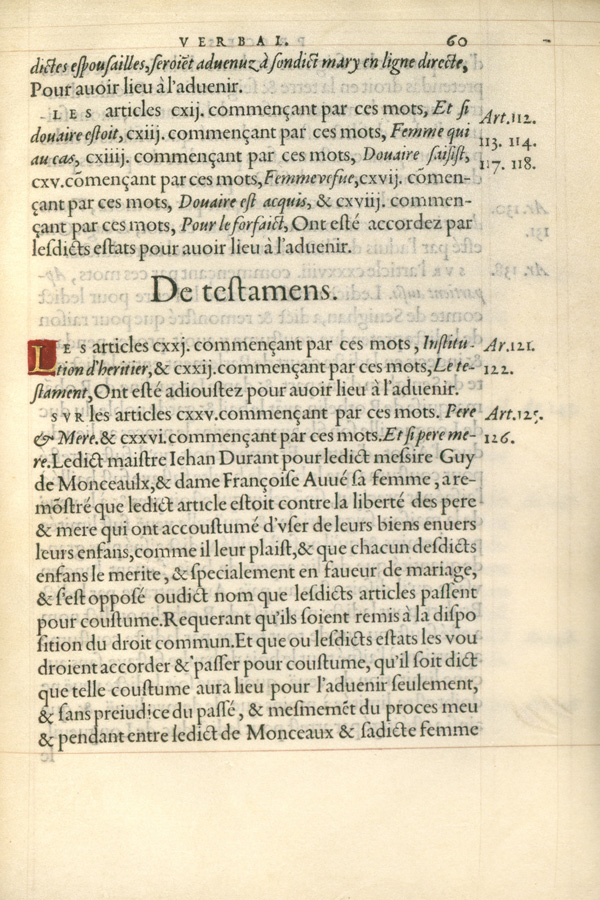 VERBAL. 60
dictes eſpouſailles, ſeroiēt aduenuz à ſondict mary en ligne directe,
Pour auoir lieu à l'aduenir.
LES articles cxij. commençant par ces mots, Et ſi Art.112.
douaire eſtoit, cxiij. commençant par ces mots, Femme qui 113. 114.
au cas, cxiiij. commençant par ces mots, Douaire ſaiſiſt, 117. 118.
cxv.cōmençant par ces mots, Femme veſue, cxvij. cōmen-
çant par ces mots, Douaire eſt acquis, & cxviij. commen-
çant par ces mots, Pour le forfaict, Ont eſté accordez par
leſdicts eſtats pour auoir lieu à l'aduenir.
De teſtamens.
LES articles cxxj. commençant par ces mots, Inſtitu- Ar.121.
tion d'heritier, & cxxij. commençant par ces mots, Le te- 122.
ſtament, Ont eſté adiouſtez pour auoir lieu à l'aduenir.
SVR les articles cxxv.commençant par ces mots. Pere Art.125.
& Mere. & cxxvi.commençant par ces mots. Et ſi pere me- 126.
re. Ledict maiſtre Iehan Durant pour ledict meſsire Guy
de Monceaulx, & dame Françoiſe Auué ſa femme, a re-
mōſtré que ledict article eſtoit contre la liberté des pere
& mere qui ont accouſtumé d'vſer de leurs biens enuers
leurs enfans, comme il leur plaiſt, & que chacun deſdicts
enfans le merite, & ſpecialement en faueur de mariage,
& s'eſt oppoſé oudict nom que leſdicts articles paſſent
pour couſtume. Requerant qu'ils ſoient remis à la diſpo
ſition du droit commun. Et que ou leſdicts eſtats les vou
droient accorder & paſſer pour couſtume, qu'il ſoit dict
que telle couſtume aura lieu pour l'aduenir ſeulement,
& ſans preiudice du paſſé, & meſmemēt du proces meu
& pendant entre ledict de Monceaux & ſadicte femme